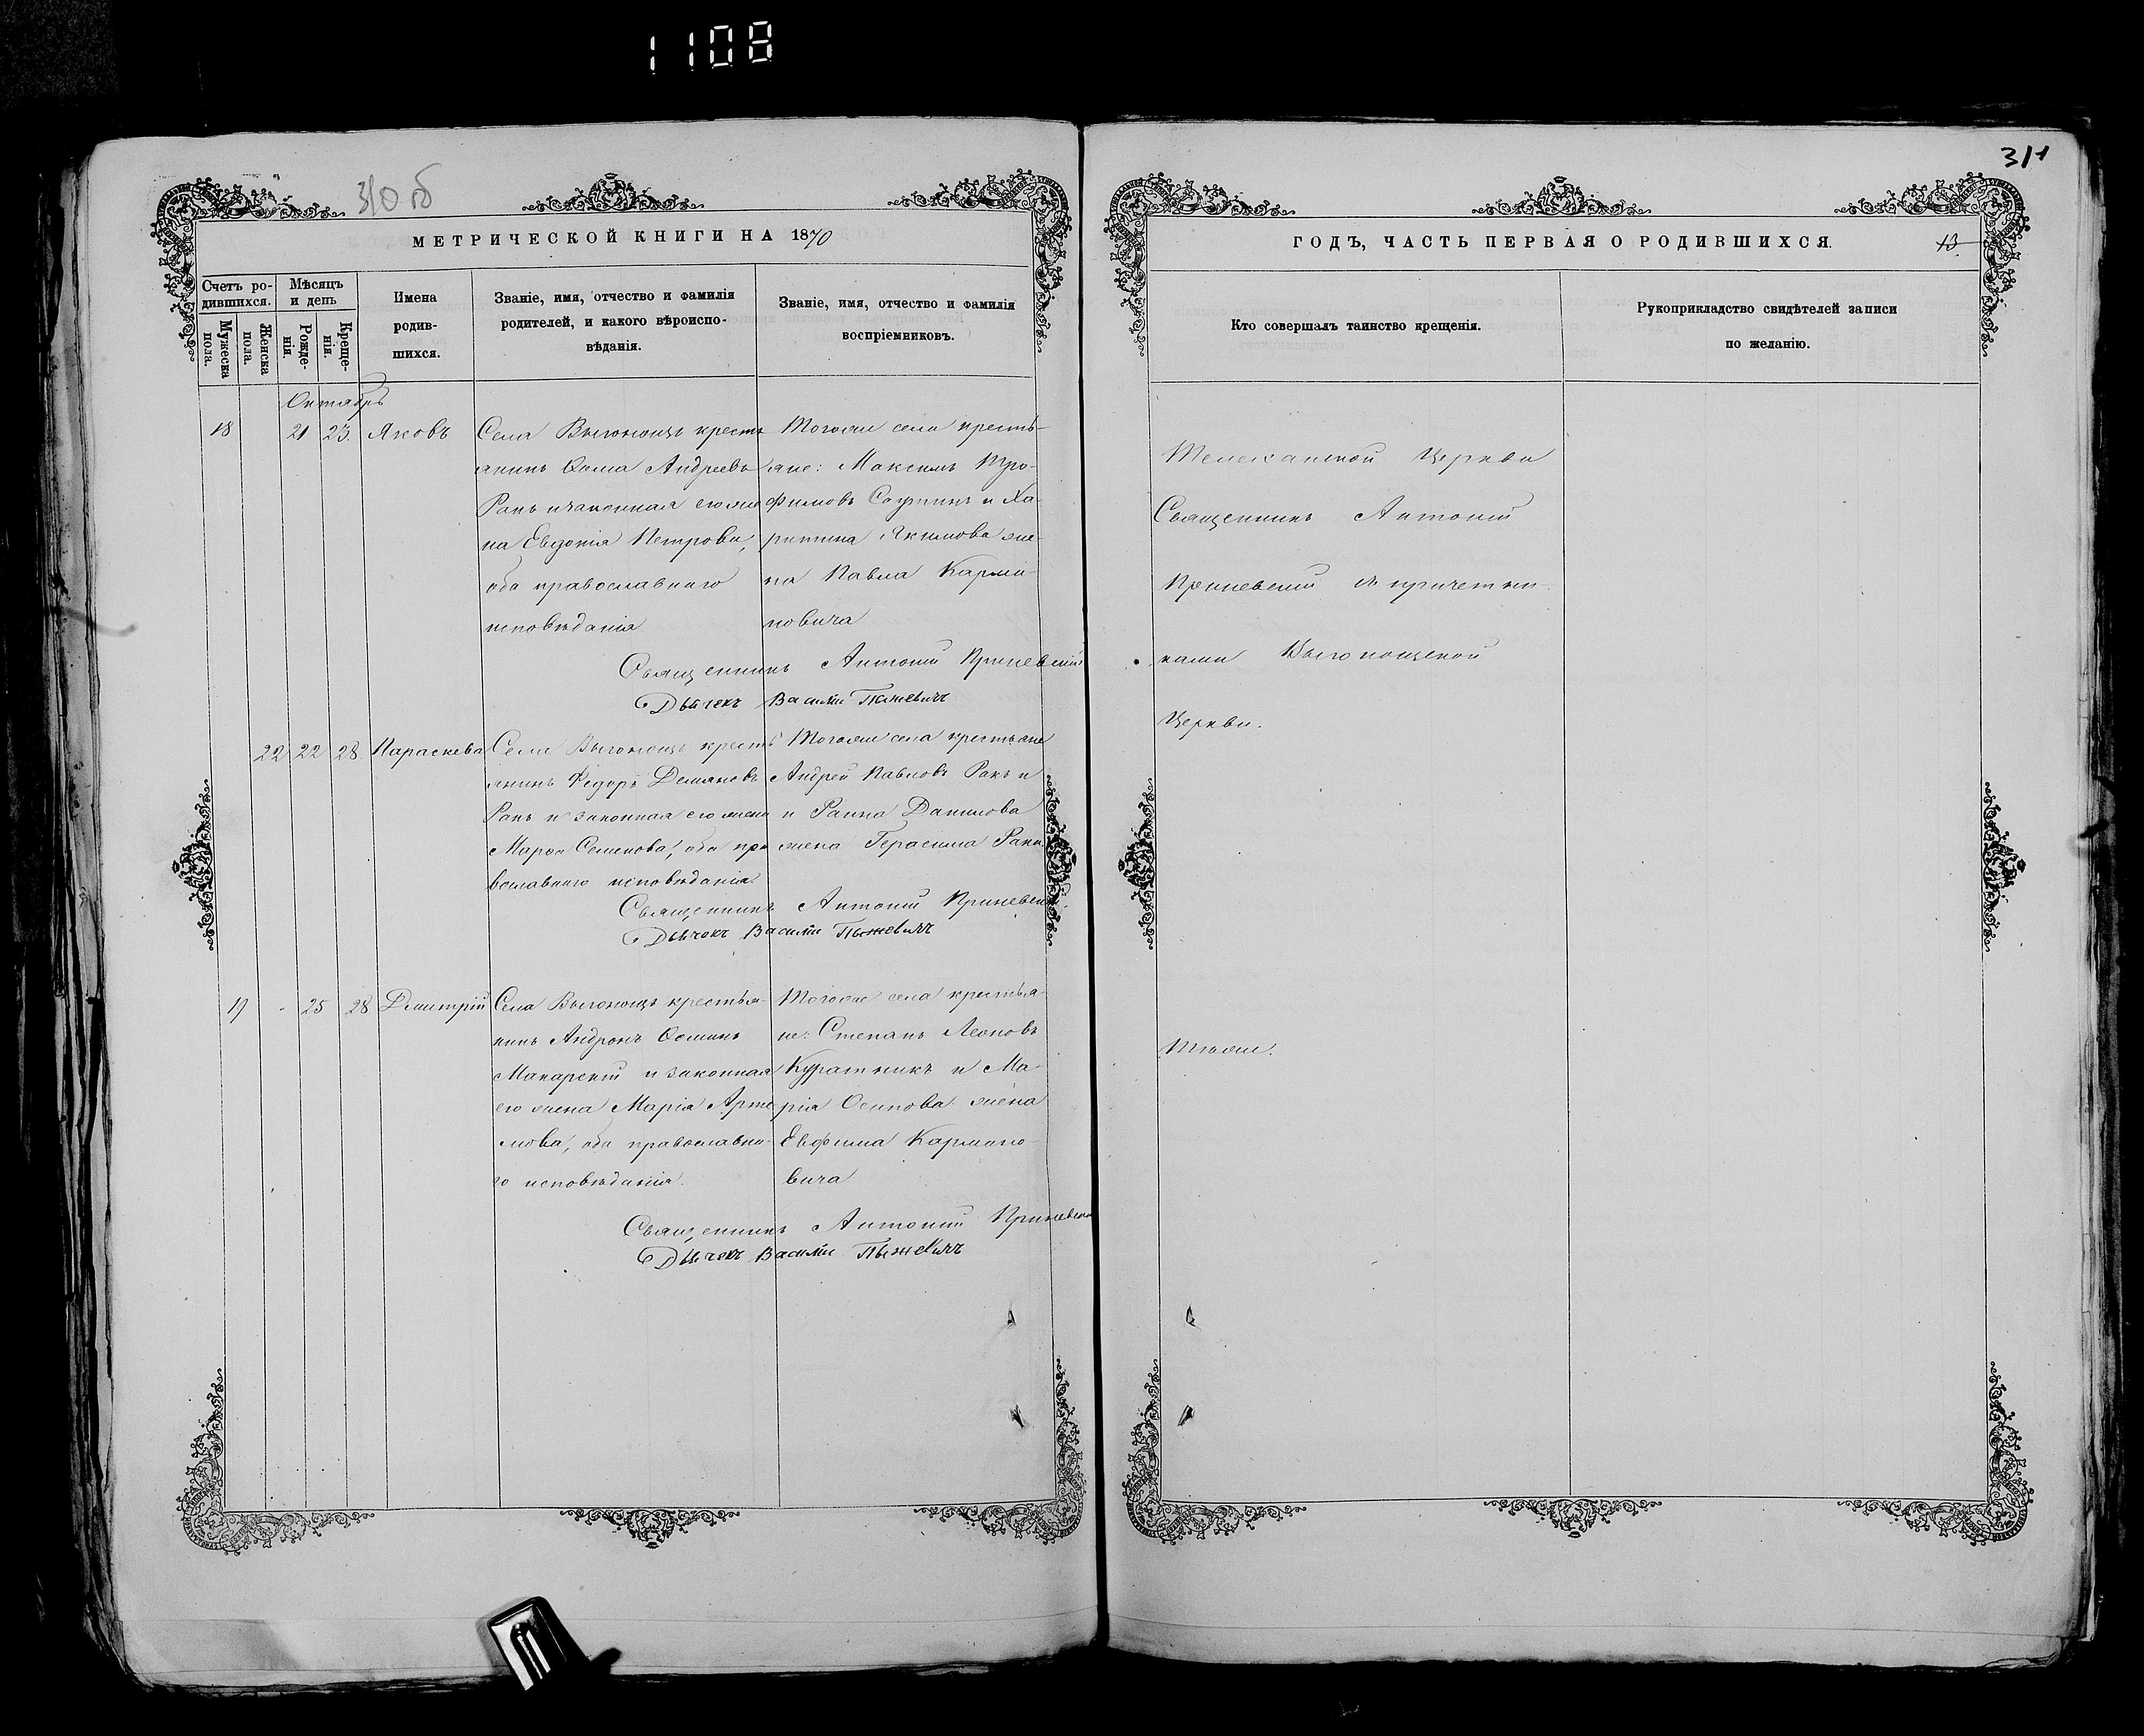 1108
310 об
МЕТРИЧЕСКОЙ КНИГИ НА 1870
Счетъ ро-
дившихся.
Мѣсяцъ
и день
Мужеска
пола.
Женска
пола.
Рожде-
нія.
Креще-
нія.
Имена
родив-
шихся.
Званіе, имя, отчество и фамилія
родителей, и какого вѣроиспо-
вѣданія.
Званіе, имя, отчество и фамилія
воспріемниковъ.
Октябрь
18 21 23. Яковъ
Села Выгонощъ кресть
янинъ Ѳома Андреевъ
Ракъ и законная его же
на Евдокія Петрова,
оба православнаго
исповѣданія
Тогоже села кресть-
яне: Максимъ Тро-
фимовъ и Ха-
ритина Якимова же-
на Павла Карма-
новича
Священникъ Антоній
Дьячекъ Василій Пыжевичъ
22 22 28. Параскева
Села Выгонощъ кресть
янинъ Ѳедоръ Демяновъ
Ракъ и законная его жена
Марѳа Семенова, оба пра
вославнаго исповѣданія.
Тогоже села крестьяне
Андрей Павловъ Ракъ и
и Раина Данилова
жена Герасима Рака
Священникъ Антоній
Дьячокъ Василій Пыжевичъ
19 - 25 28 Дмитрій
Села Выгонощъ крестья-
нинъ Андронъ Ѳоминъ
Макарскій и законная
его жена Марія Арте
мова, оба православна-
го исповѣданія.
Тогоже села крестья-
не: Степанъ Леоновъ
Куратникъ и Ма-
рія Осипова жена
Евфима Кармано-
вича
Священникъ Антоній
Дьячекъ Василій Пыжевичъ
311
ГОДЪ, ЧАСТЬ ПЕРВАЯ О РОДИВШИХСЯ.
13.
Кто совершалъ таинство крещенія.
Рукоприкладство свидѣтелей записи
по желанію.
Телеханской Церкви
Священникъ Антоній
съ причетни-
ками Выгонощской
Церкви.
Тѣже.